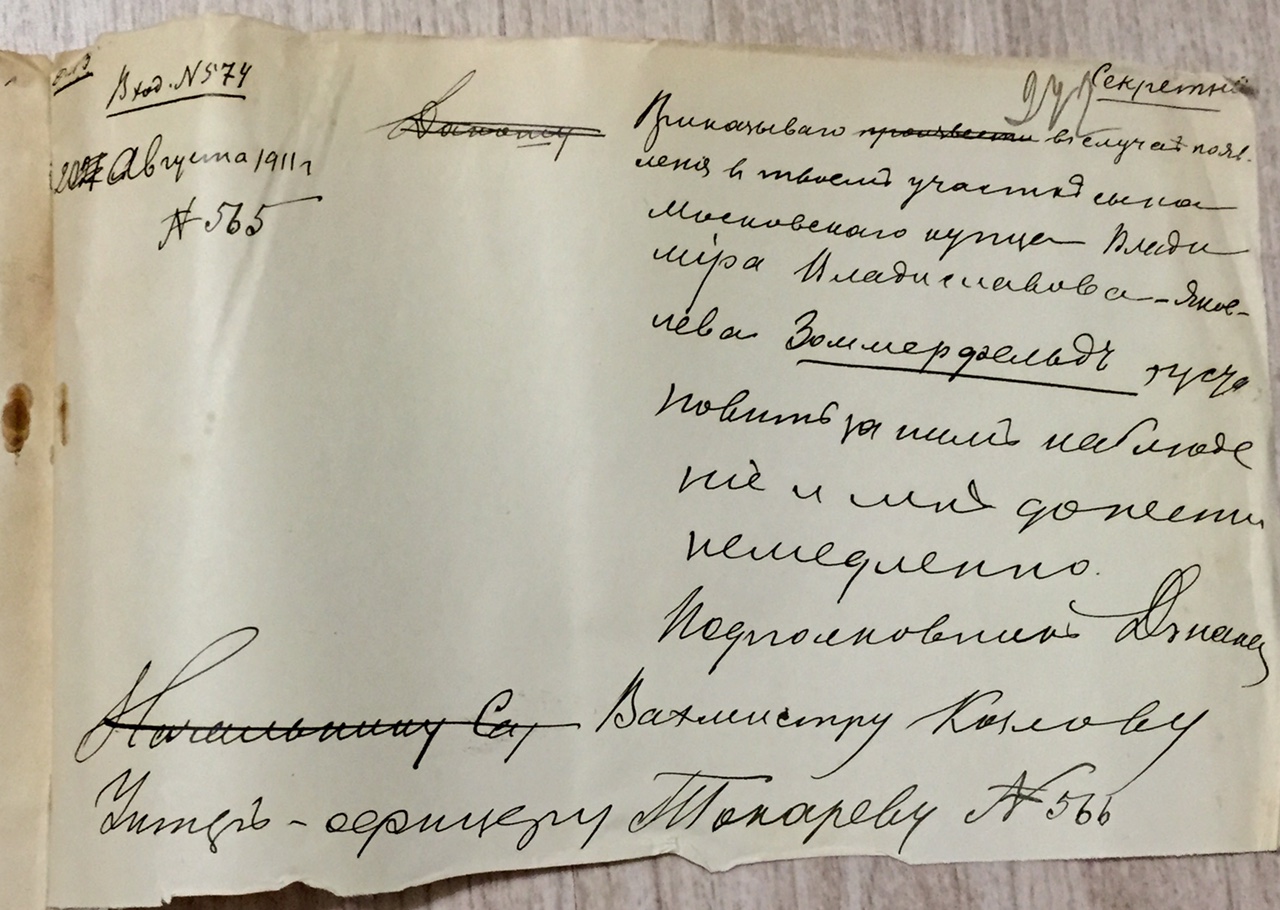 Вход. № 574
Секретно
Данному
202 Августа 1911 г
№ 565
Приказываю произвести въ случаѣ появ-
ленія въ твоемъ участкѣ сына
московскаго купца Влади
міра Владиславова-Яков-
лева Зоммерфельдъ уста
новить за нимъ наблюде
ніе и мнѣ донести
немедленно.
Подполковникъ
Начальнику Са Вахмистру Козлову
Унтеръ-офицеру Токареву № 566